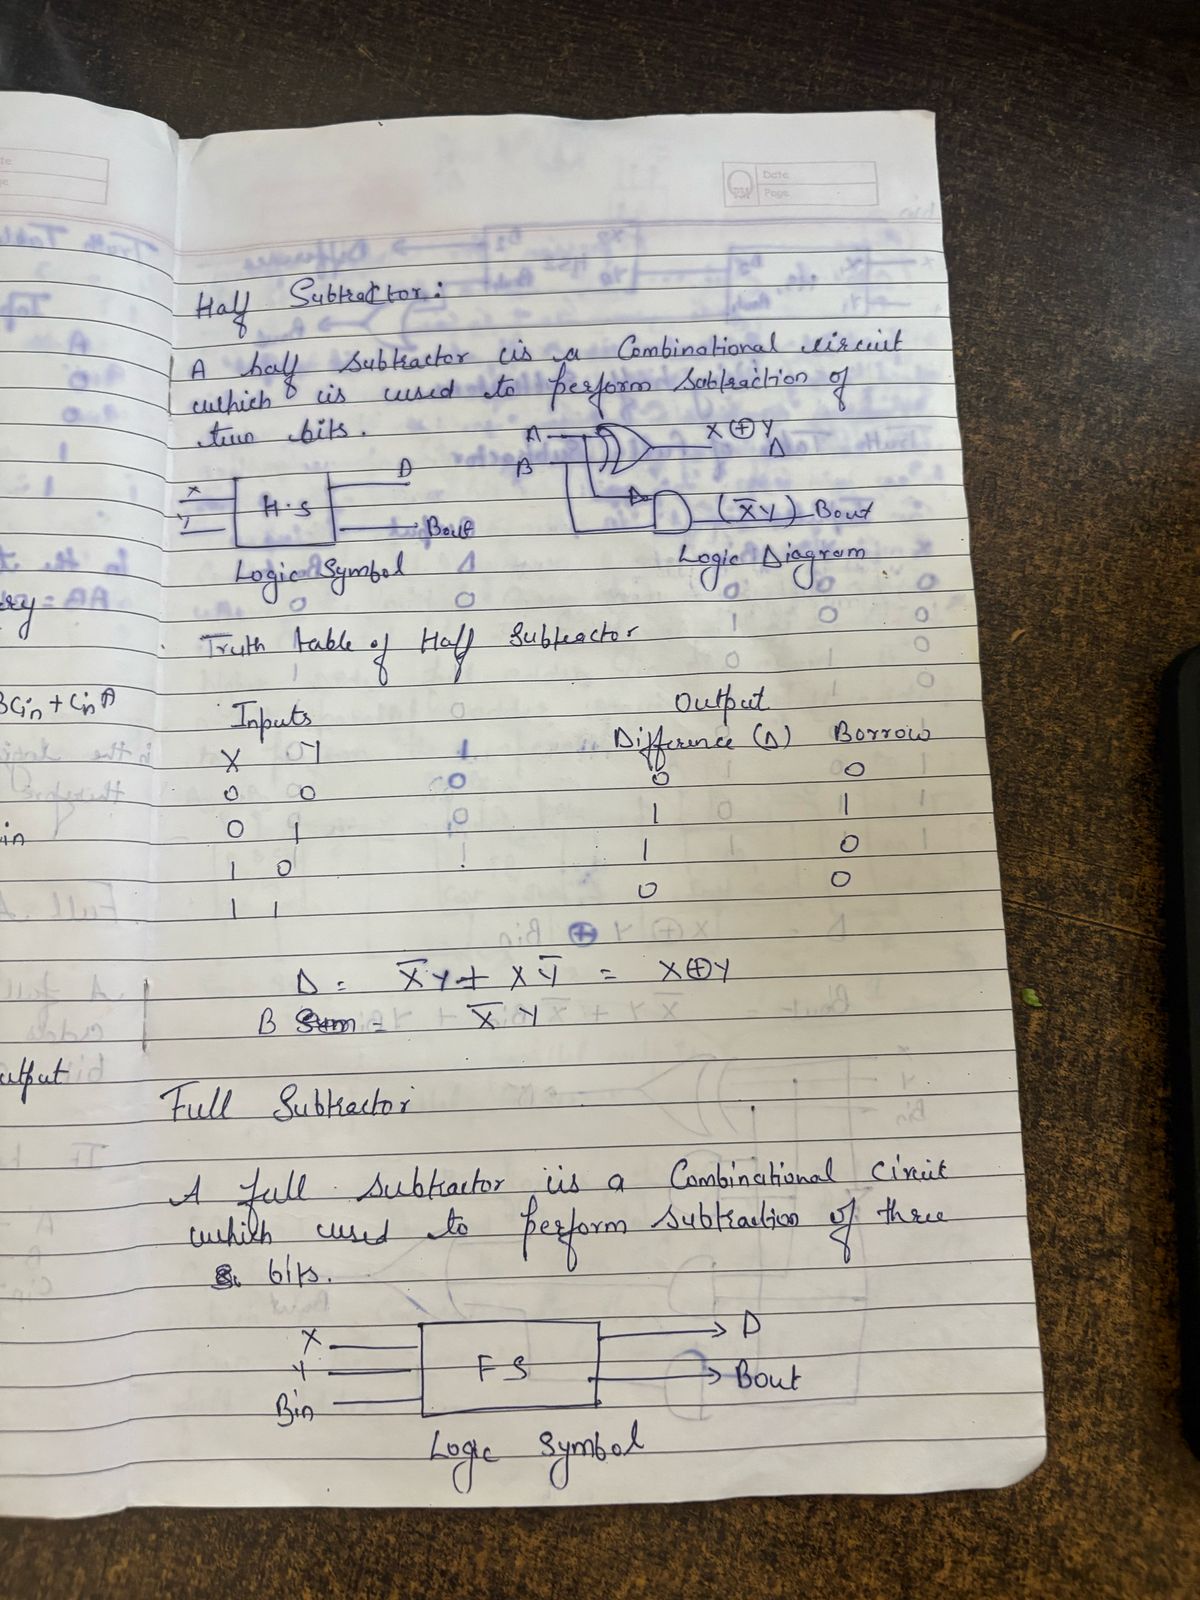 Date
Page
Half Subtractor:
A half subtractor is a Combinational circuit
which is used to perform Subtraction of
two bits.
A
B
X ⊕ Y
D
X
Y
H.S
D
Bout
(X̅Y) Bout
Logic Symbol
Logic Diagram
Truth table of Half Subtractor
Inputs Output
X Y Difference (D) Borrow
0 0 0 0
0 1 1 1
1 0 1 0
1 1 0 0
D = X̅Y + XY̅ = X⊕Y
B = X̅Y
Full Subtractor
A full subtractor is a Combinational Circuit
which used to perform subtraction of three
bits.
X
Y
Bin
FS
D
Bout
Logic Symbol